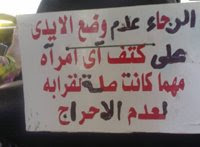 الرجاء عدم وضع الايدى
على كتف أى امرأه
مهما كانت صلة نقرابه
لعدم الاحراج